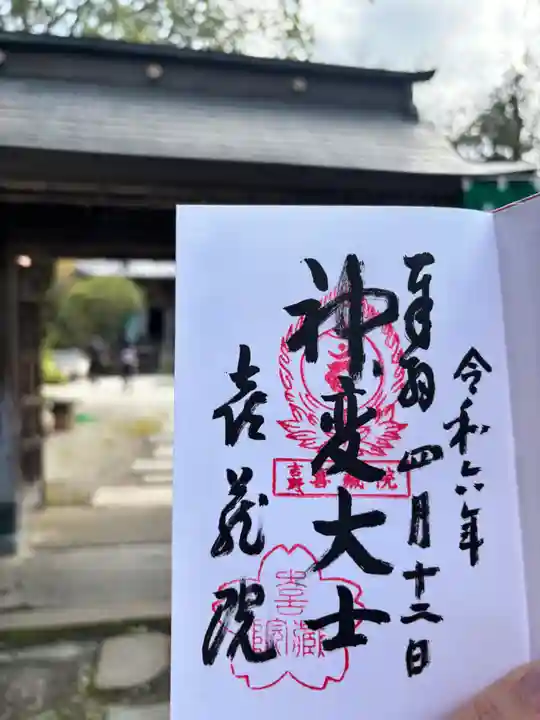 令和六年
奉拝 四月十二日
神変大士
吉野 喜蔵院
喜蔵院
喜蔵院